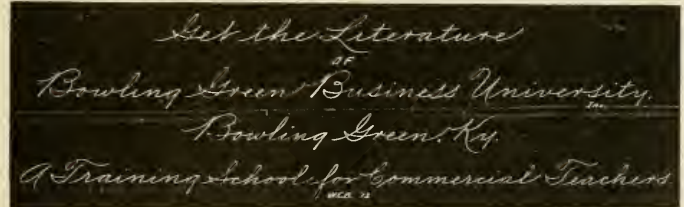 Get the Literature
OF
Bowling Green Business University.
Inc.
Bowling Green, Ky.
A Training School for Commercial Teachers
W.C.B. 12